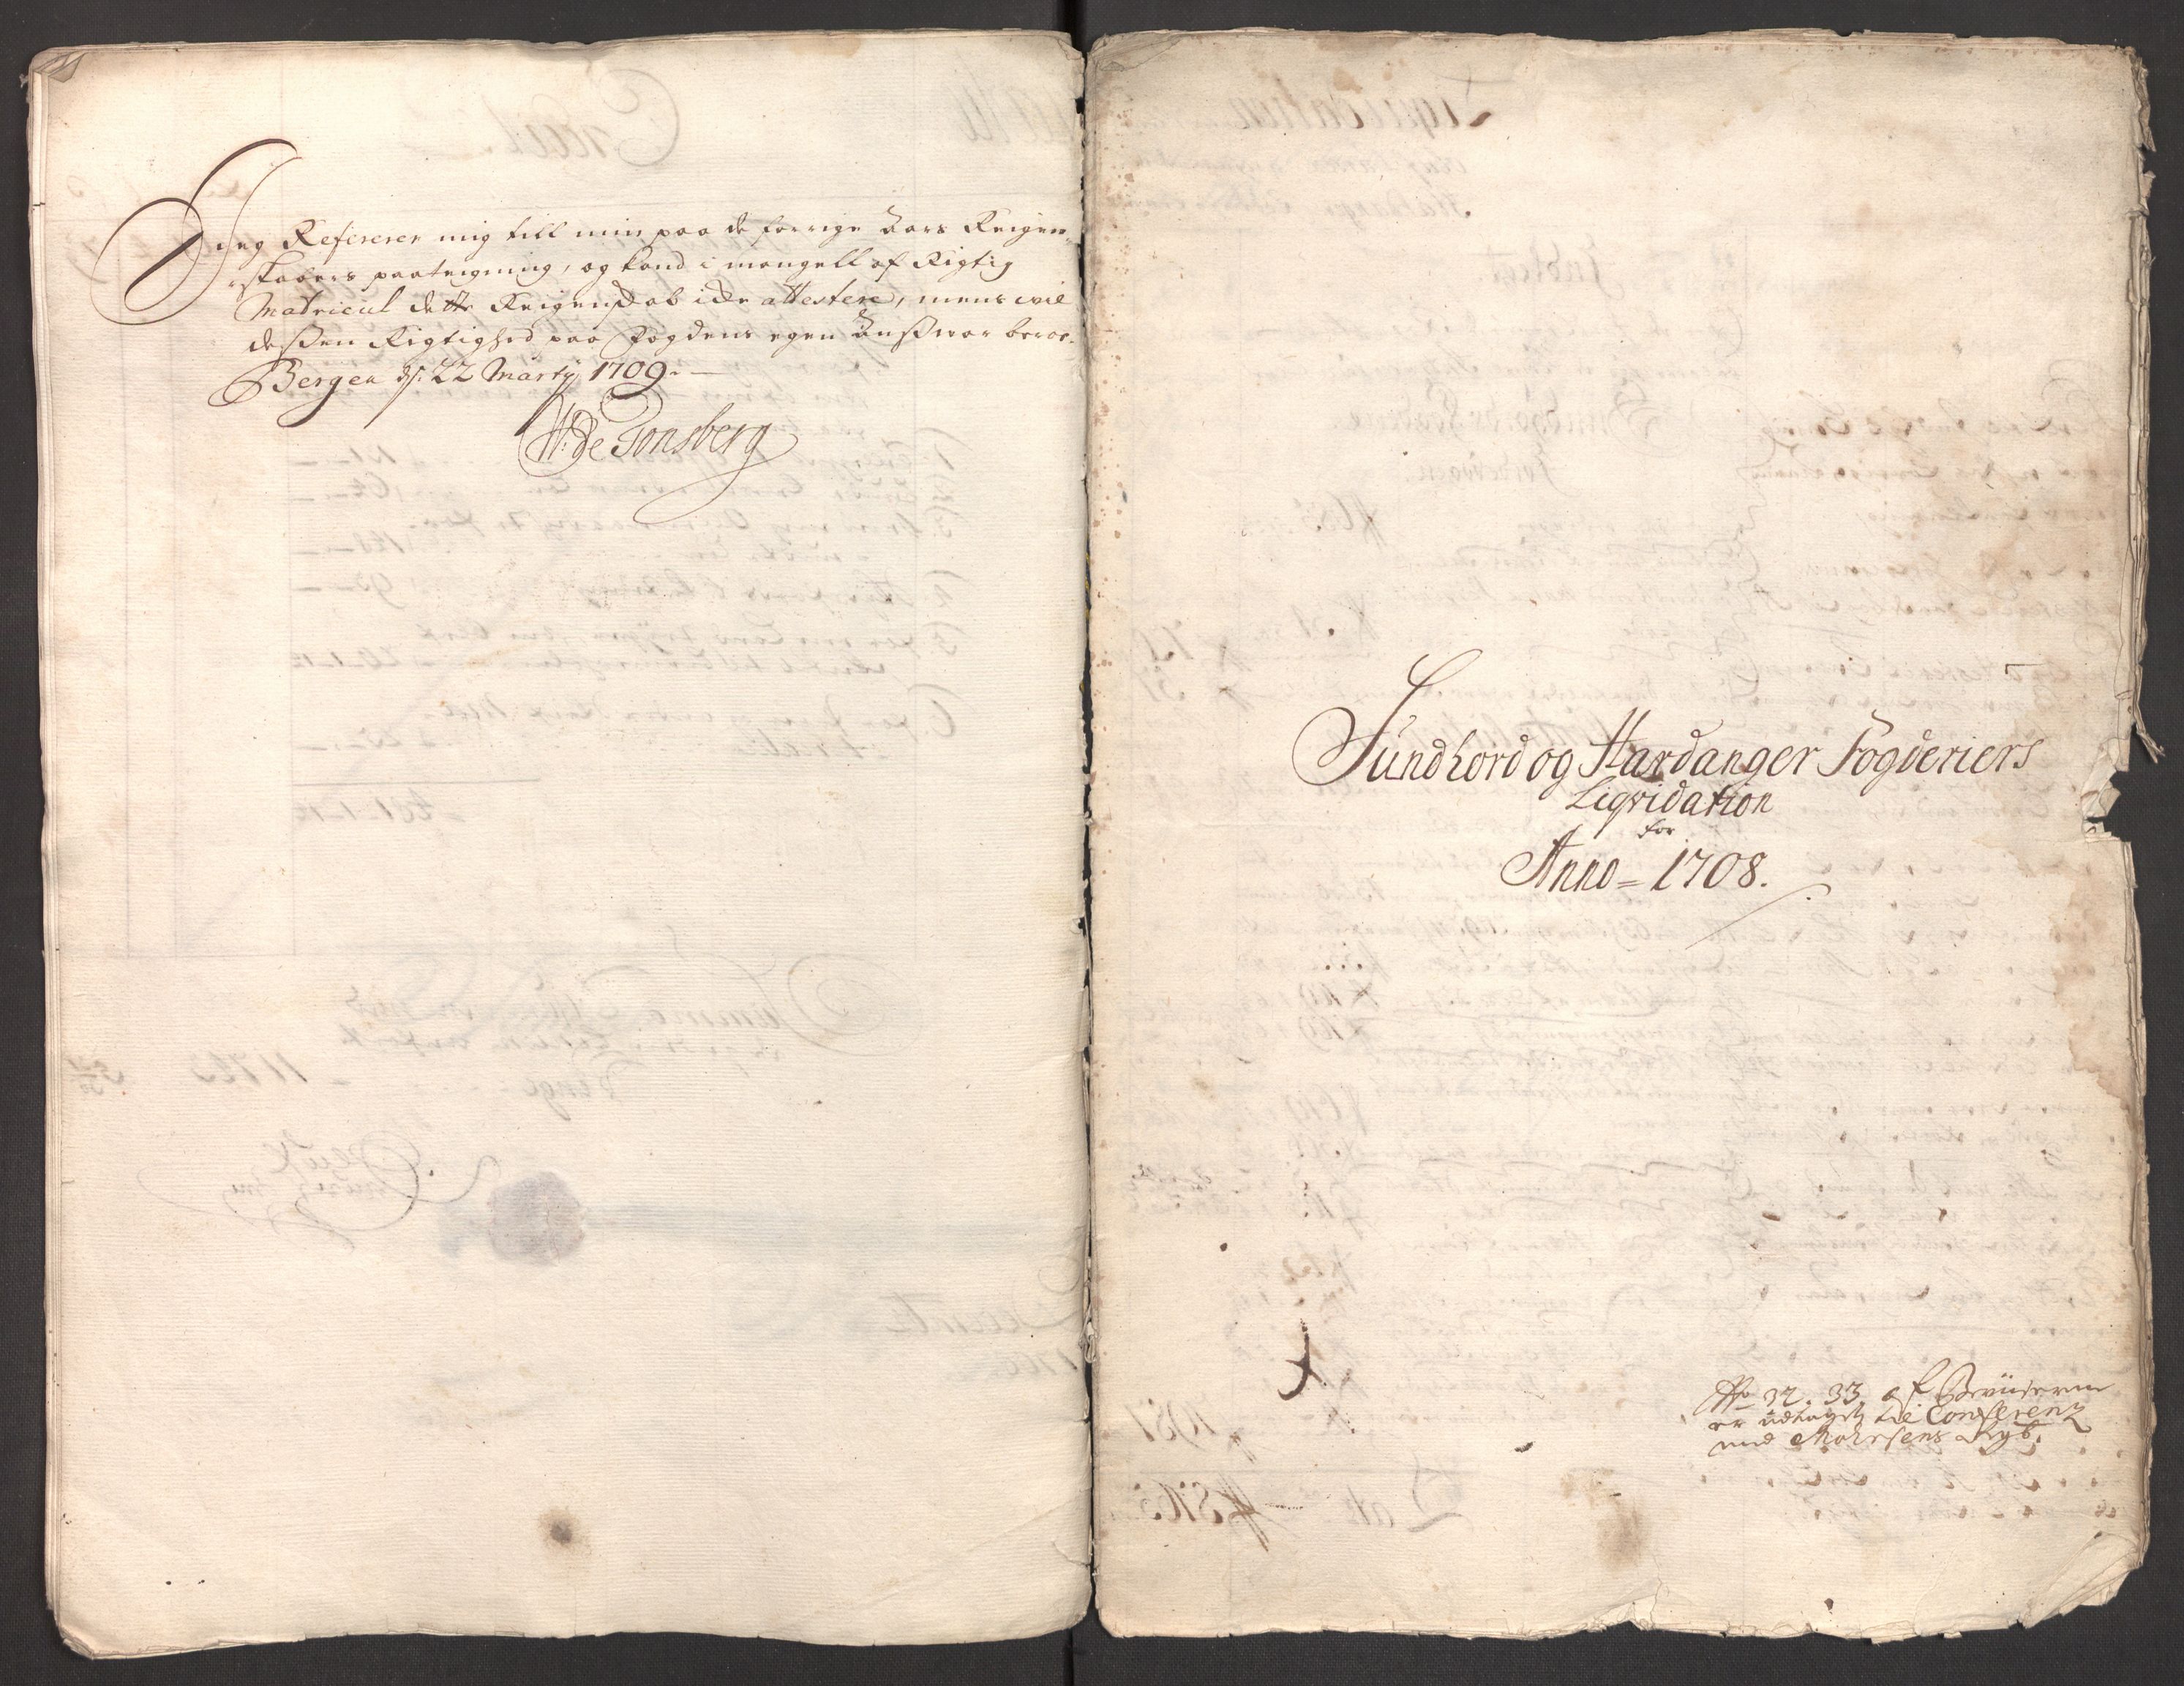 Jeg Refererer mig till min paa de forrige Aars Reigen-
skabers paateigning, og kand i mangell af Rigtig
Matricul dette Reigenskab icke attestere, mens wil
deßen Rigtighed paa Fogdens egen Ansvar beroe.
Bergen ds: 22 Marty 1709.
W: De Tonsberg
Sundhord og Hardanger Fogderiers
Liqvidation
for
Anno = 1708.
No 32. 33. af Beviiserne
er udtagt til Conferenz
med